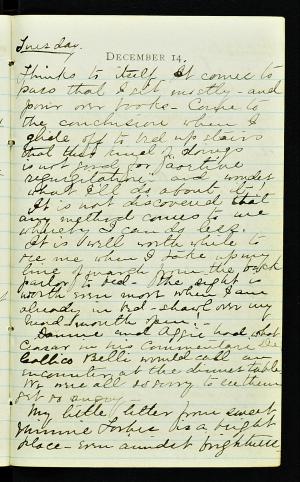 Tuesday.
DECEMBER 14.
Thinks to itself. It comes to
pass that I sit mostly - and
pour over books - Come to
the conclusion when I
glide off to bed up stairs
that this kind of doings
is not good for
and wonder
what I'll do about it!
It is not discovered that
any method comes to me
whereby I can do less.
It is well worth while to
see me when I take up my
line of march from the back
parlor to bed - The sight is
worth even more when I am
already in bed - shawl over my
head mouth
and Aggie had what
Caesar in his Commentari De
Gallico Belli would call an
encounter at the dinner table
We were all so sorry to see them
get so angry -
My little letter from sweet
Minnie is a bright
place - even amidst brightness